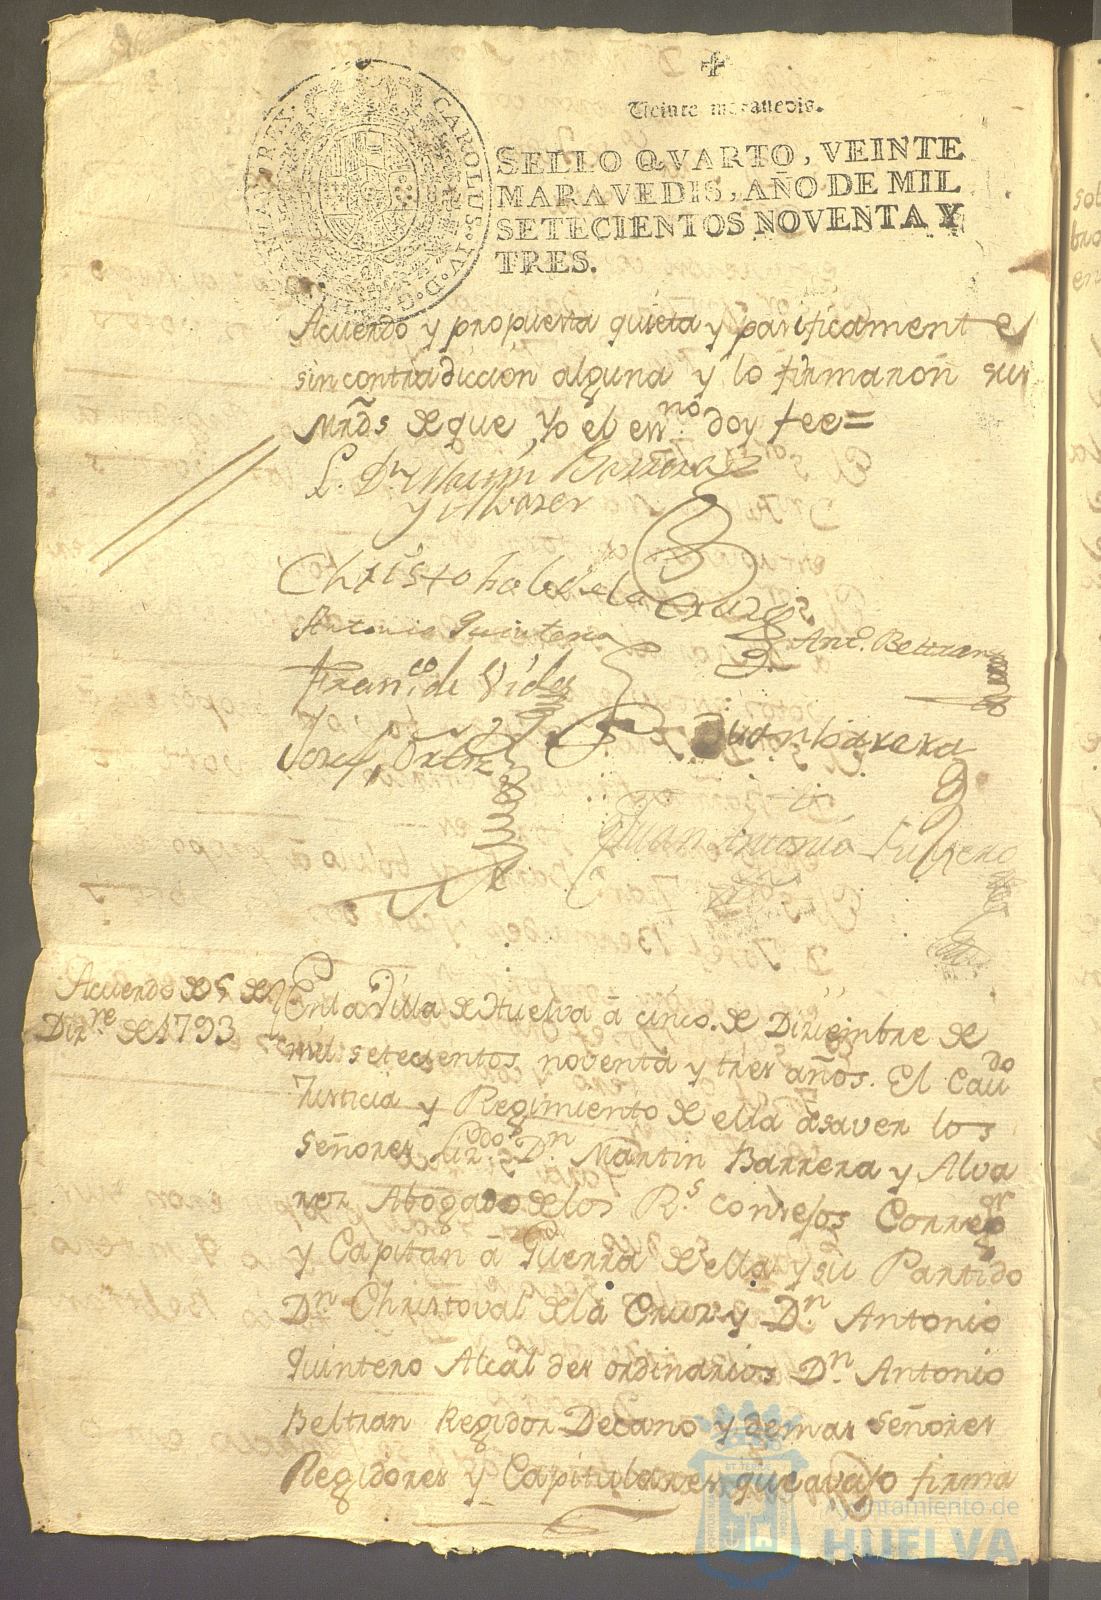 ✠
Veinte maravedis.
CAROLUS. IV. D. G. HISPAN. REX.
SELLO QVARTO, VEINTE
MARAVEDIS, AÑO DE MIL
SETECIENTOS NOVENTA Y
TRES.
Acuerdo y propuesta quieta y pacificamente
sin contradiccion alguna y lo firmaron sus
Mrds de que Yo el essno doy fee=
L. Dn Martin Barrera
y Alvarez
Christobal de la Cruz
Antonio Quintero
Anto. Beltran
Franco. de Vides
Josef Ortiz
Juan Barrera
Juan Antonio
Acuerdo de 5 de
Dizre de 1793
En la Villa de Huelva á cinco de Diziembre de
mil setecientos noventa y tres años. El Cavdo
Justicia y Regimiento de ella asaver los
Señores Licdo. Dn. Martin Barrera y Alva
rez Abogado de los Rs. Consejos Corregor
y Capitan á Guerra de ella y su Partido
Dn. Christoval de la Cruz y Dn. Antonio
Quintero Alcaldes ordinarios Dn. Antonio
Beltran Regidor Decano y demas Señores
Regidores y Capitulares que avajo firma
Ayuntamiento de
HUELVA